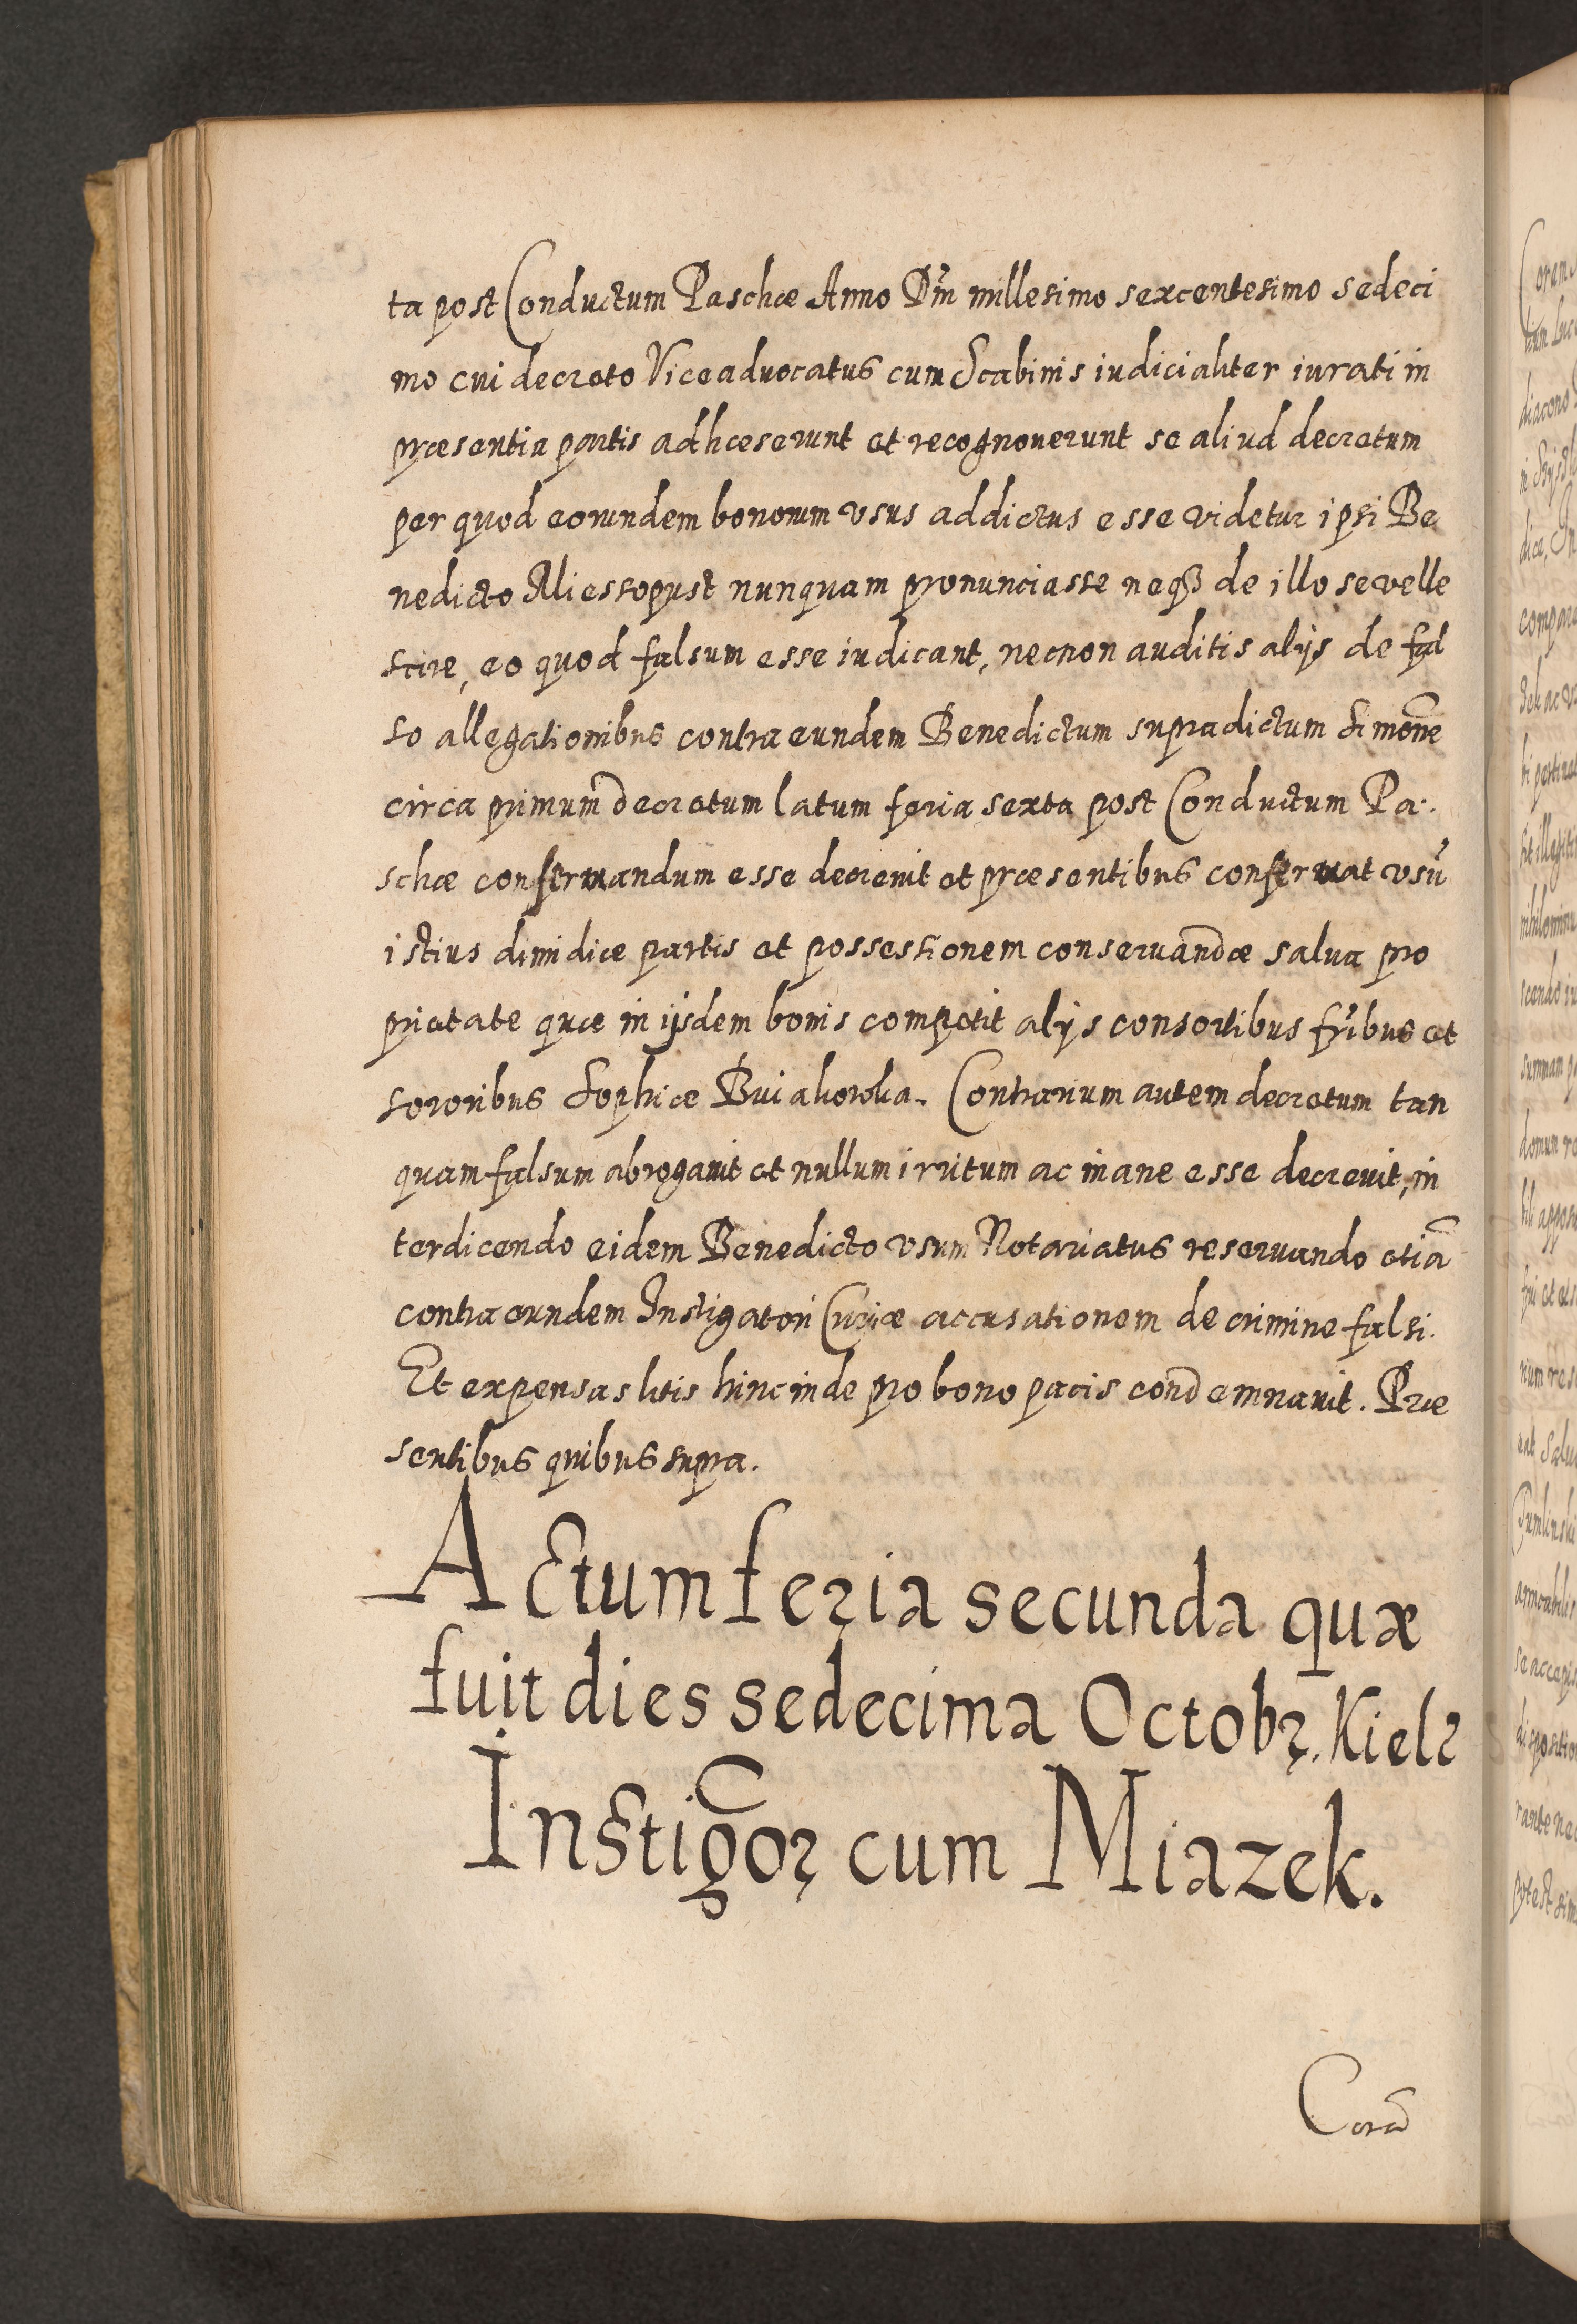 ta post Conductum Paschæ Anno Dm̃ millesimo sexcentesimo sedeci
mo cui decreto Viceadvocatus cum Scabinis iudicialiter iurati in
præsentia partis adhæserunt et recognouerunt se aliud decretum
per quod eorundem bonorum vsus addictus esse videtur ipsi Be
nedicto Miessopust nunquam pronunciasse neqꝫ de illo se velle
scire, eo quod falsum esse iudicant, necnon auditis alijs de fal
so allegationibus contra eundem Benedictum supradictum Simone͂
circa primum decretum latum feria sexta post Conductum Pa:
schæ conseruandum esse decreuit et præsentibus conseruat vsu͂
istius dimidiæ partis et possessionem conseruandæ salua pro
prietate quæ in ijsdem bonis competit alijs consortibus fr͂ibus et
sororibus Sophiæ Buiakowka. Contrarium autem decretum tan
quam falsum abrogauit et nullum irritum ac inane esse decreuit, in
terdicendo eidem Benedicto vsum Notariatus reseruando etia͂
contra eundem Instigatori Curiæ accusationem de crimine falsi.
Et expensas litis hinc inde pro bono pacis condemnauit. Præ
sentibus quibus supra.
Actum feria secunda quæ
fuit dies sedecima Octobr. Kielc
Instig͂or cum Miazek.
Cora͂